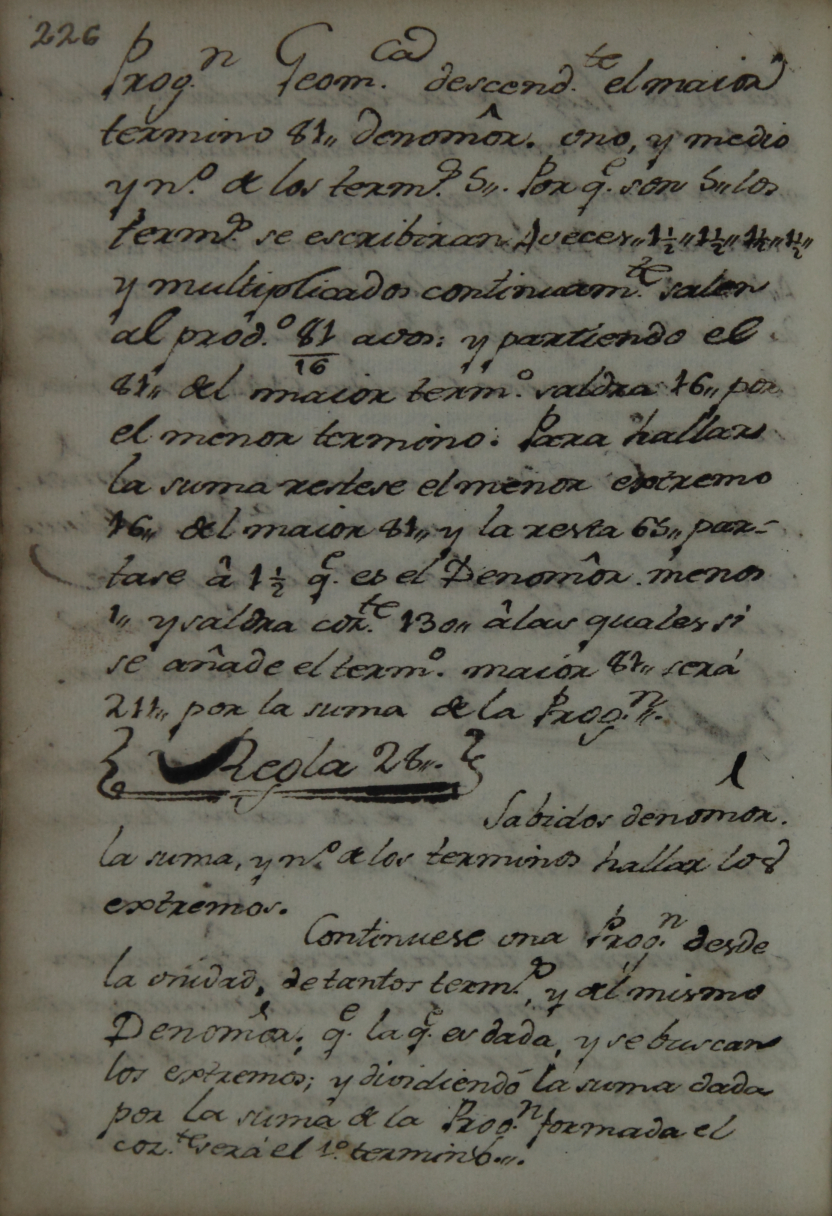 226
Prog.n Geom.ca descend.te el maior
termino 81,, denomôr. uno, y medio
y n.o de los term.s 5,,. Por q.e son 5,, los
term.s se escribiran 4 veces,, 1 1/2,, 1 1/2,, 1 1/2,, 1 1/2,,
y multiplicados continuam.te salen
al prod.o 81/16 avos: y partiendo el
81,, del maior term.o saldra 16,, por
el menor termino. Para hallar
la suma restese el menor extremo
16,, del maior 81,, y la resta 65,, par-
tase â 1 1/2 q.e es el Denomôr. menos
1,, y saldra coz.te 130,, âlas quales si
se añade el term.o maior 81,, será
211,, por la suma de la Prog.n,,.
Regla 28,,.
Sabidos denomor.l
la suma, y n.o de los terminos hallar los
extremos.
Continuese una Prog.n desde
la unidad, de tantos term.s, y del mismo
Denomôr, q.e la q.e es dada, y se buscan
los extremos; y dividiendo la suma dada
por la suma de la Prog.n formada el
coz.te será el 1.o termino,,.